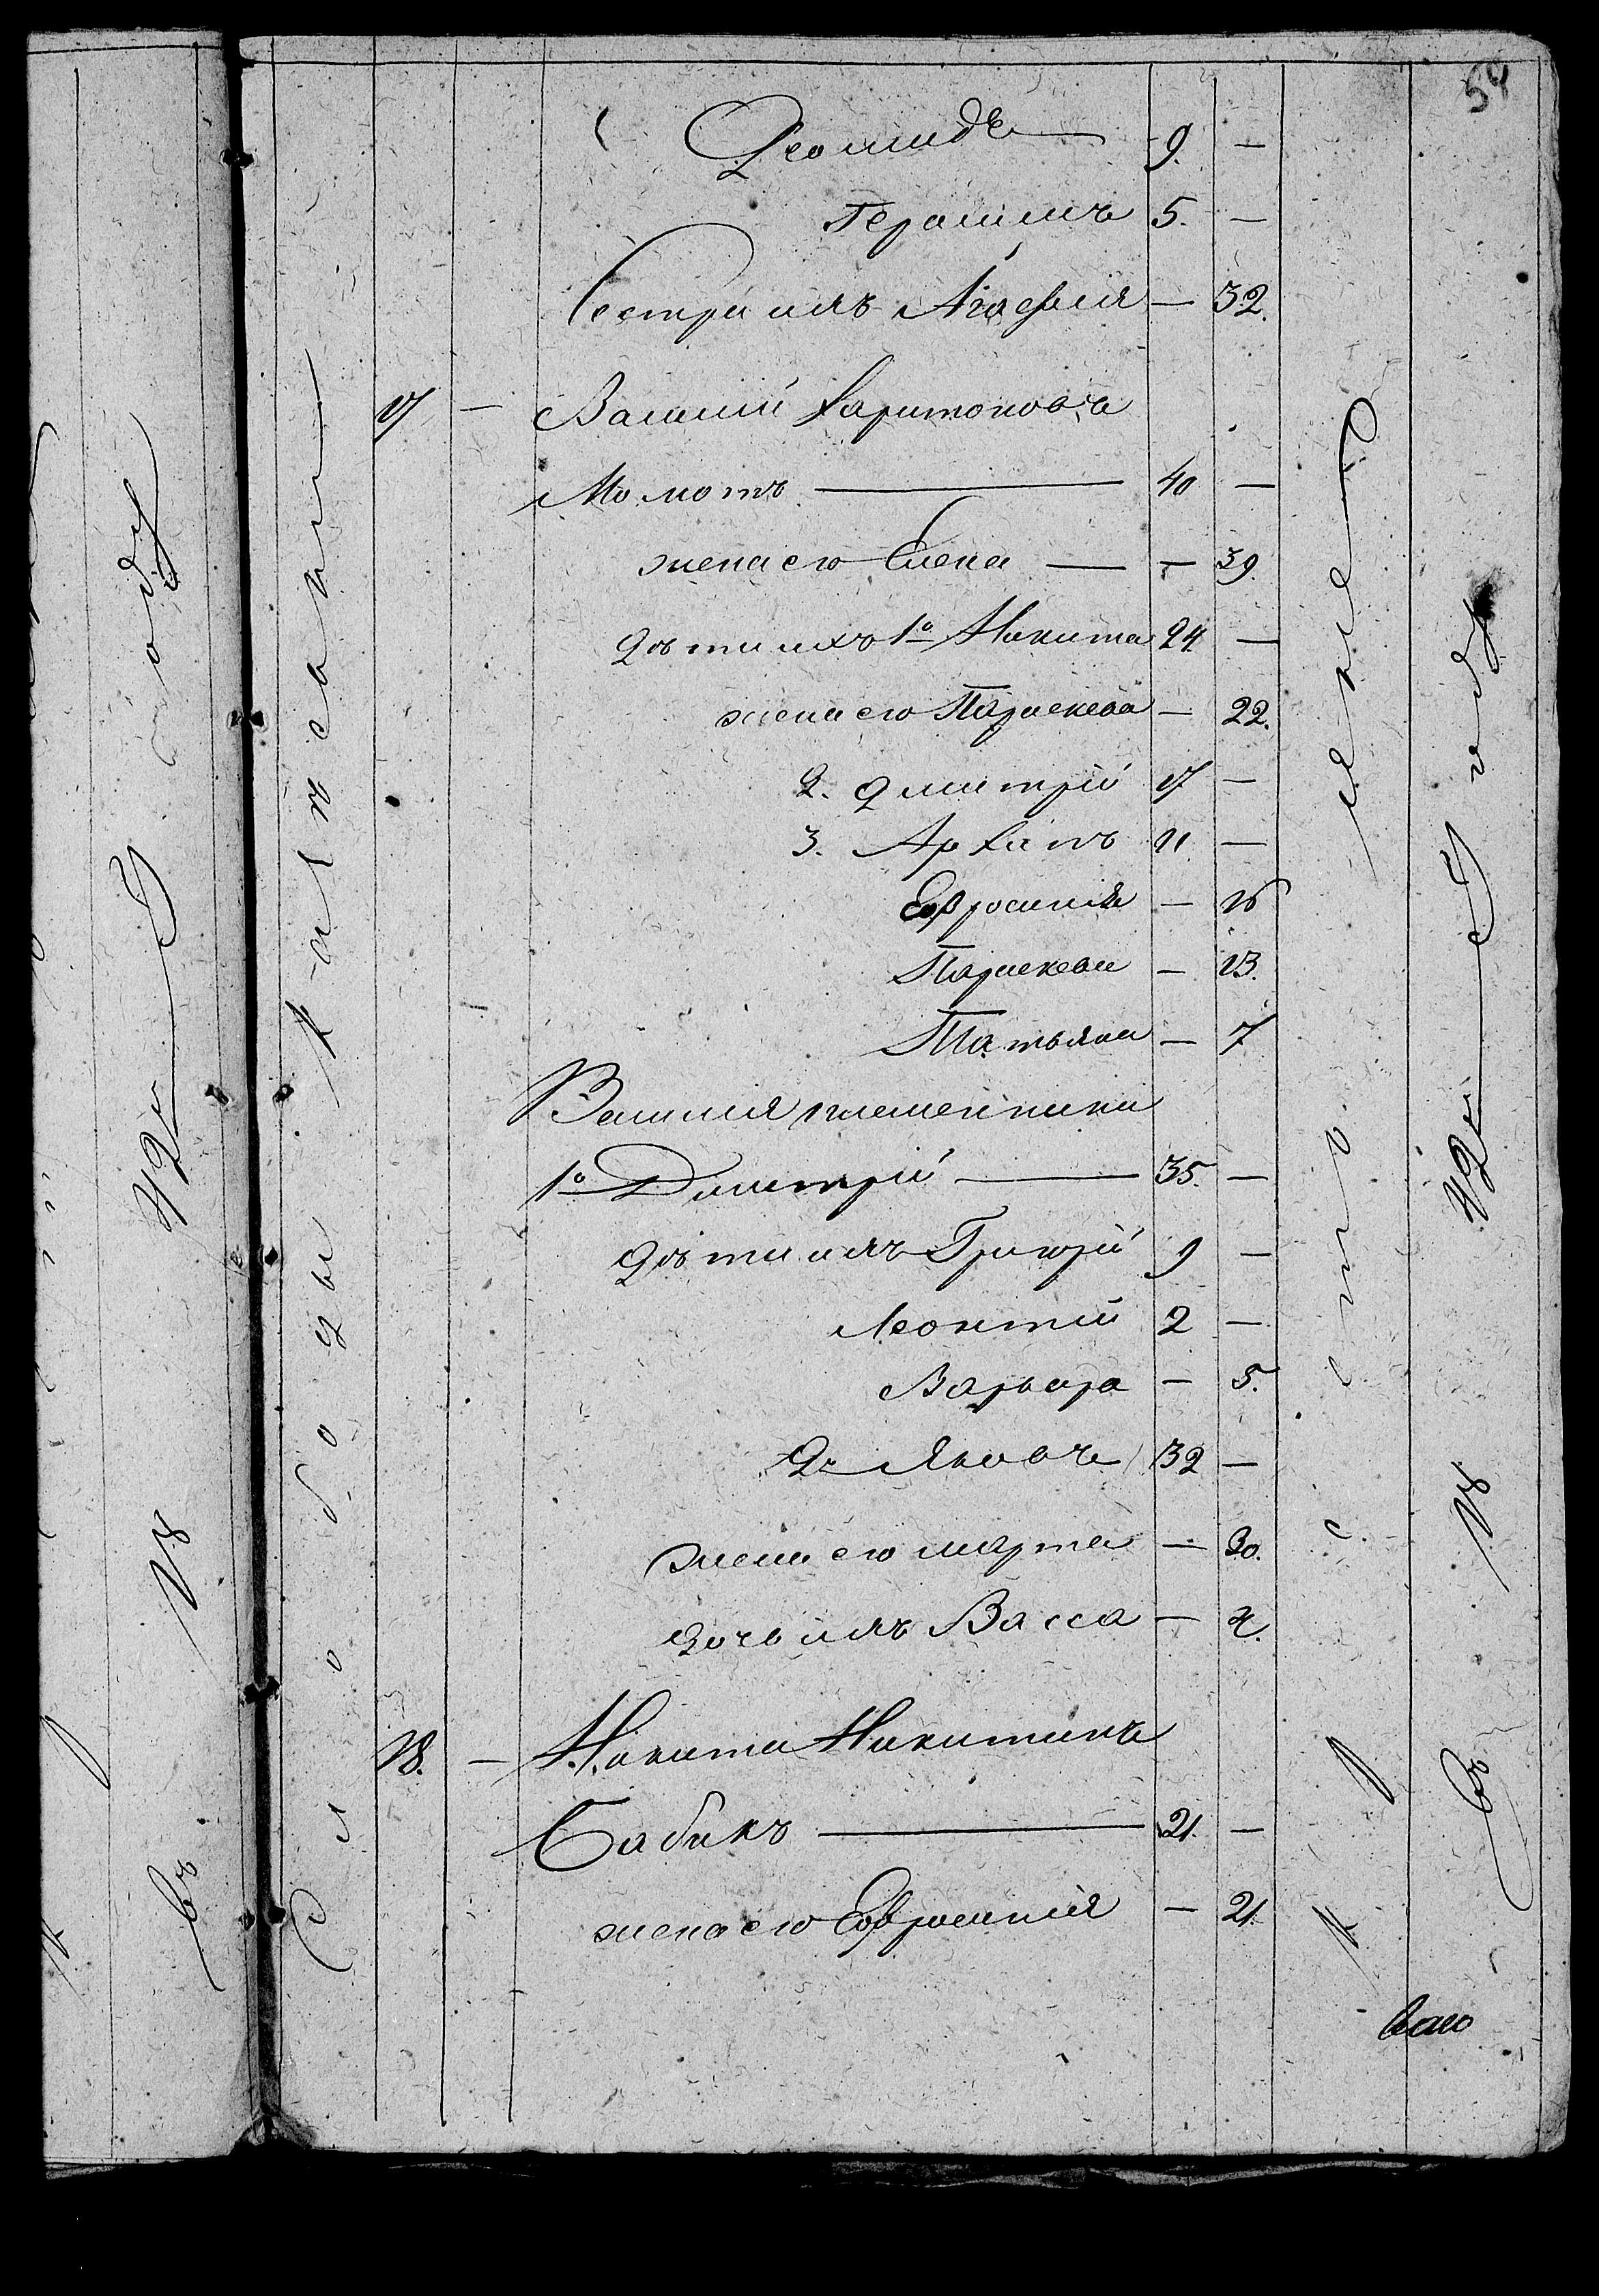 59
Деомидъ 9. —
Герасимъ 5. —
Сестра ихъ Агафия — 32.
17 — Василий Харитоновъ
Момотъ — 40 —
жена его Елена — — 39.
Дѣти ихъ 1й Никита 24 —
жена его Параскева — 22.
2. Дмитрій 17 —
3. Архипъ 11 —
Ефросинія — 16
Параскева — 13.
Татьяна — 7
Василия племенники
1й Димитрій — 35. —
Дѣти ихъ Григорій 9 —
Леонтій 2 —
Варвара — 5.
2й Яковъ 32 —
жена его Марта — 30.
дочь ихъ Васса — 2.
18. — Никита Никитинъ
Бабакъ — 21. —
жена его Ефросинія — 21
Слободы
въ 18 42 году
въ 18 42 году